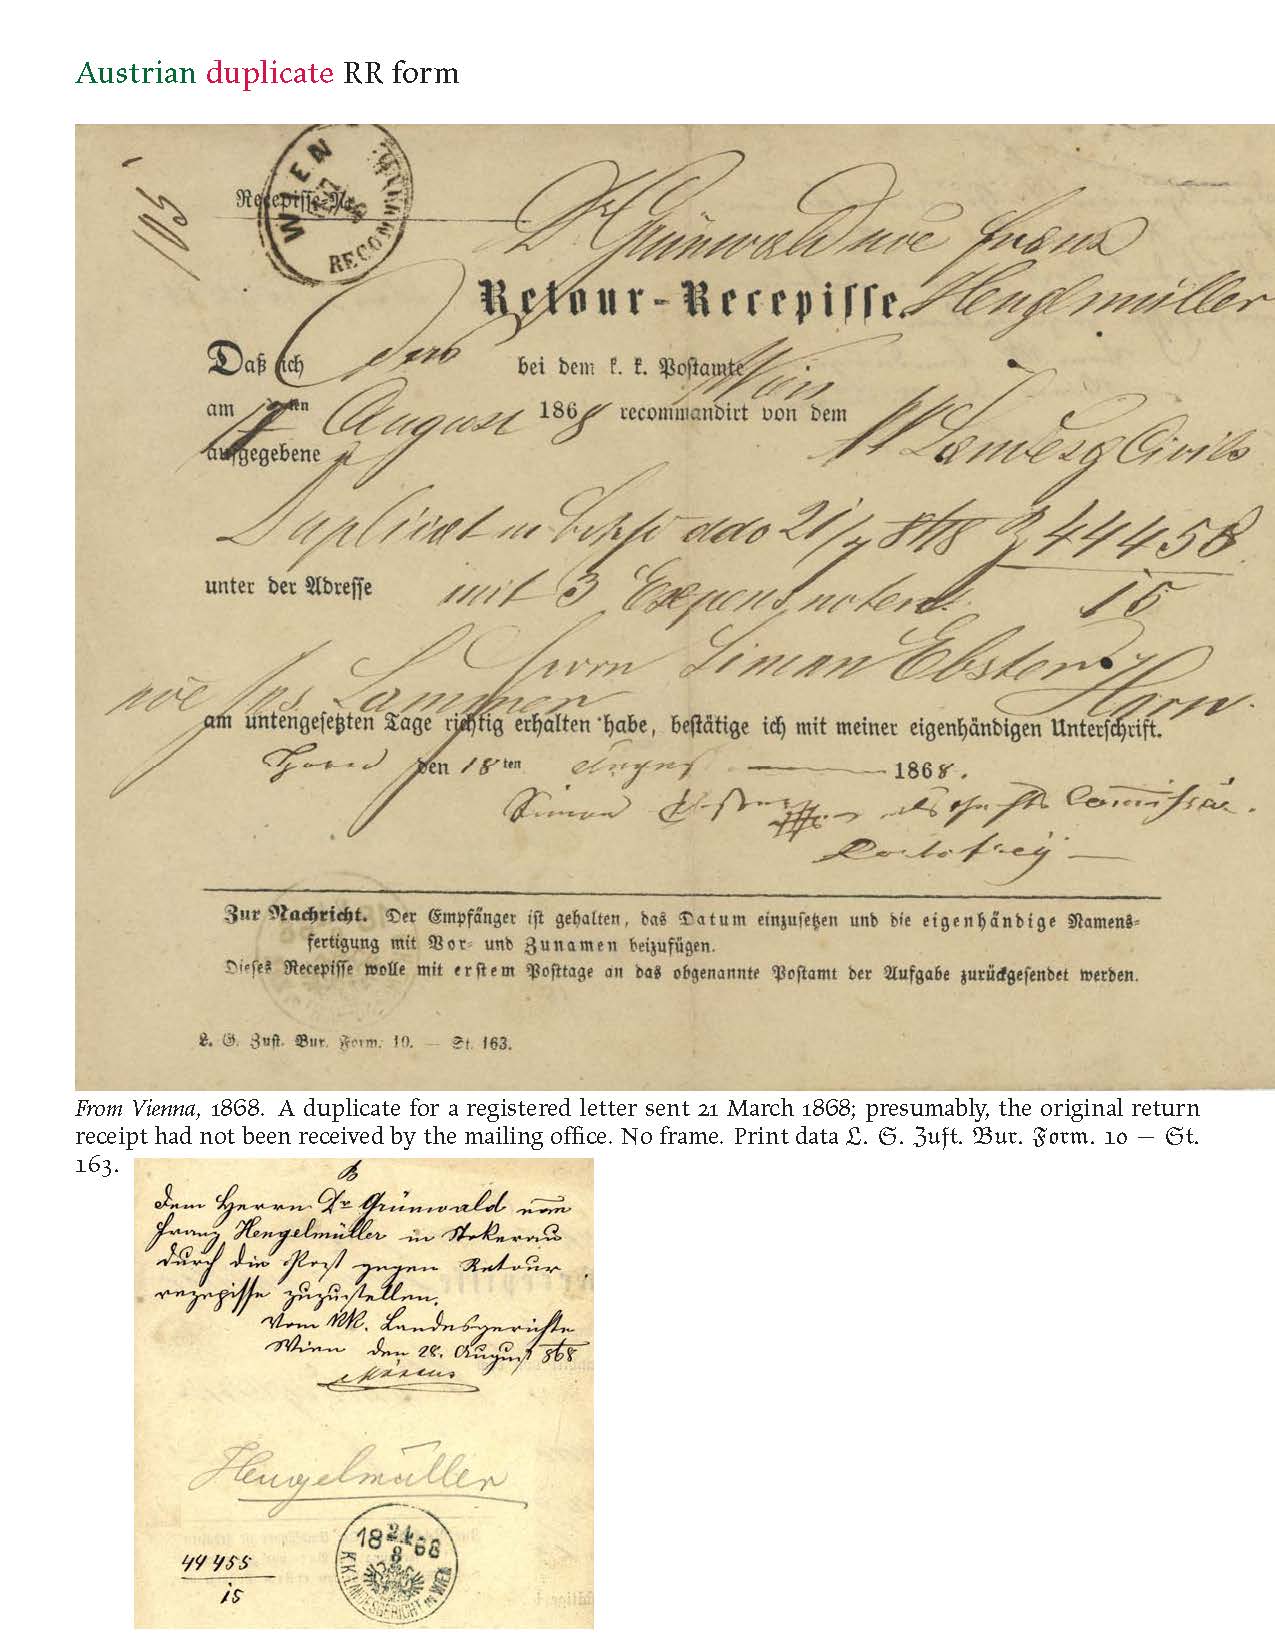 Austrian duplicate RR form
105
WIEN
RECOM
Recepisse-Nr.
Dr Grünwald nõe Franz
Retour-Recepisse Hengelmüller
Daß ich bei dem k. k. Postamte Wien
am 17ten August 1868 recommandirt von dem
aufgegebene kk Landesg Civils
Duplicat ddo 21/7 868 Z 44458
unter der Adresse mit 3 Expensnoten 15
Herrn Simon Ebster
nõe Jos. Lammer Horn.
am untengesetzten Tage richtig erhalten habe, bestätige ich mit meiner eigenhändigen Unterschrift.
Horn den 18ten August 1868.
Simon Commissär.
Zur Nachricht. Der Empfänger ist gehalten, das Datum einzusetzen und die eigenhändige Namens-
fertigung mit Vor- und Zunamen beizufügen.
Dieses Recepisse wolle mit erstem Posttage an das obgenannte Postamt der Aufgabe zurückgesendet werden.
L. G. Zust. Bur. Form. 10. — St. 163.
From Vienna, 1868. A duplicate for a registered letter sent 21 March 1868; presumably, the original return
receipt had not been received by the mailing office. No frame. Print data L. G. Zust. Bur. Form. 10 — St.
163.
Dem Herrn Dr Grünwald nõe
Franz Hengelmüller in Stokerau
durch die Post gegen Retour
rezepisse zuzustellen.
Vom kk. Landesgerichte
Wien den 28. August 868
Hengelmüller
18 68
8
K.K. LANDESGERICHT IN WIEN
44 455
15